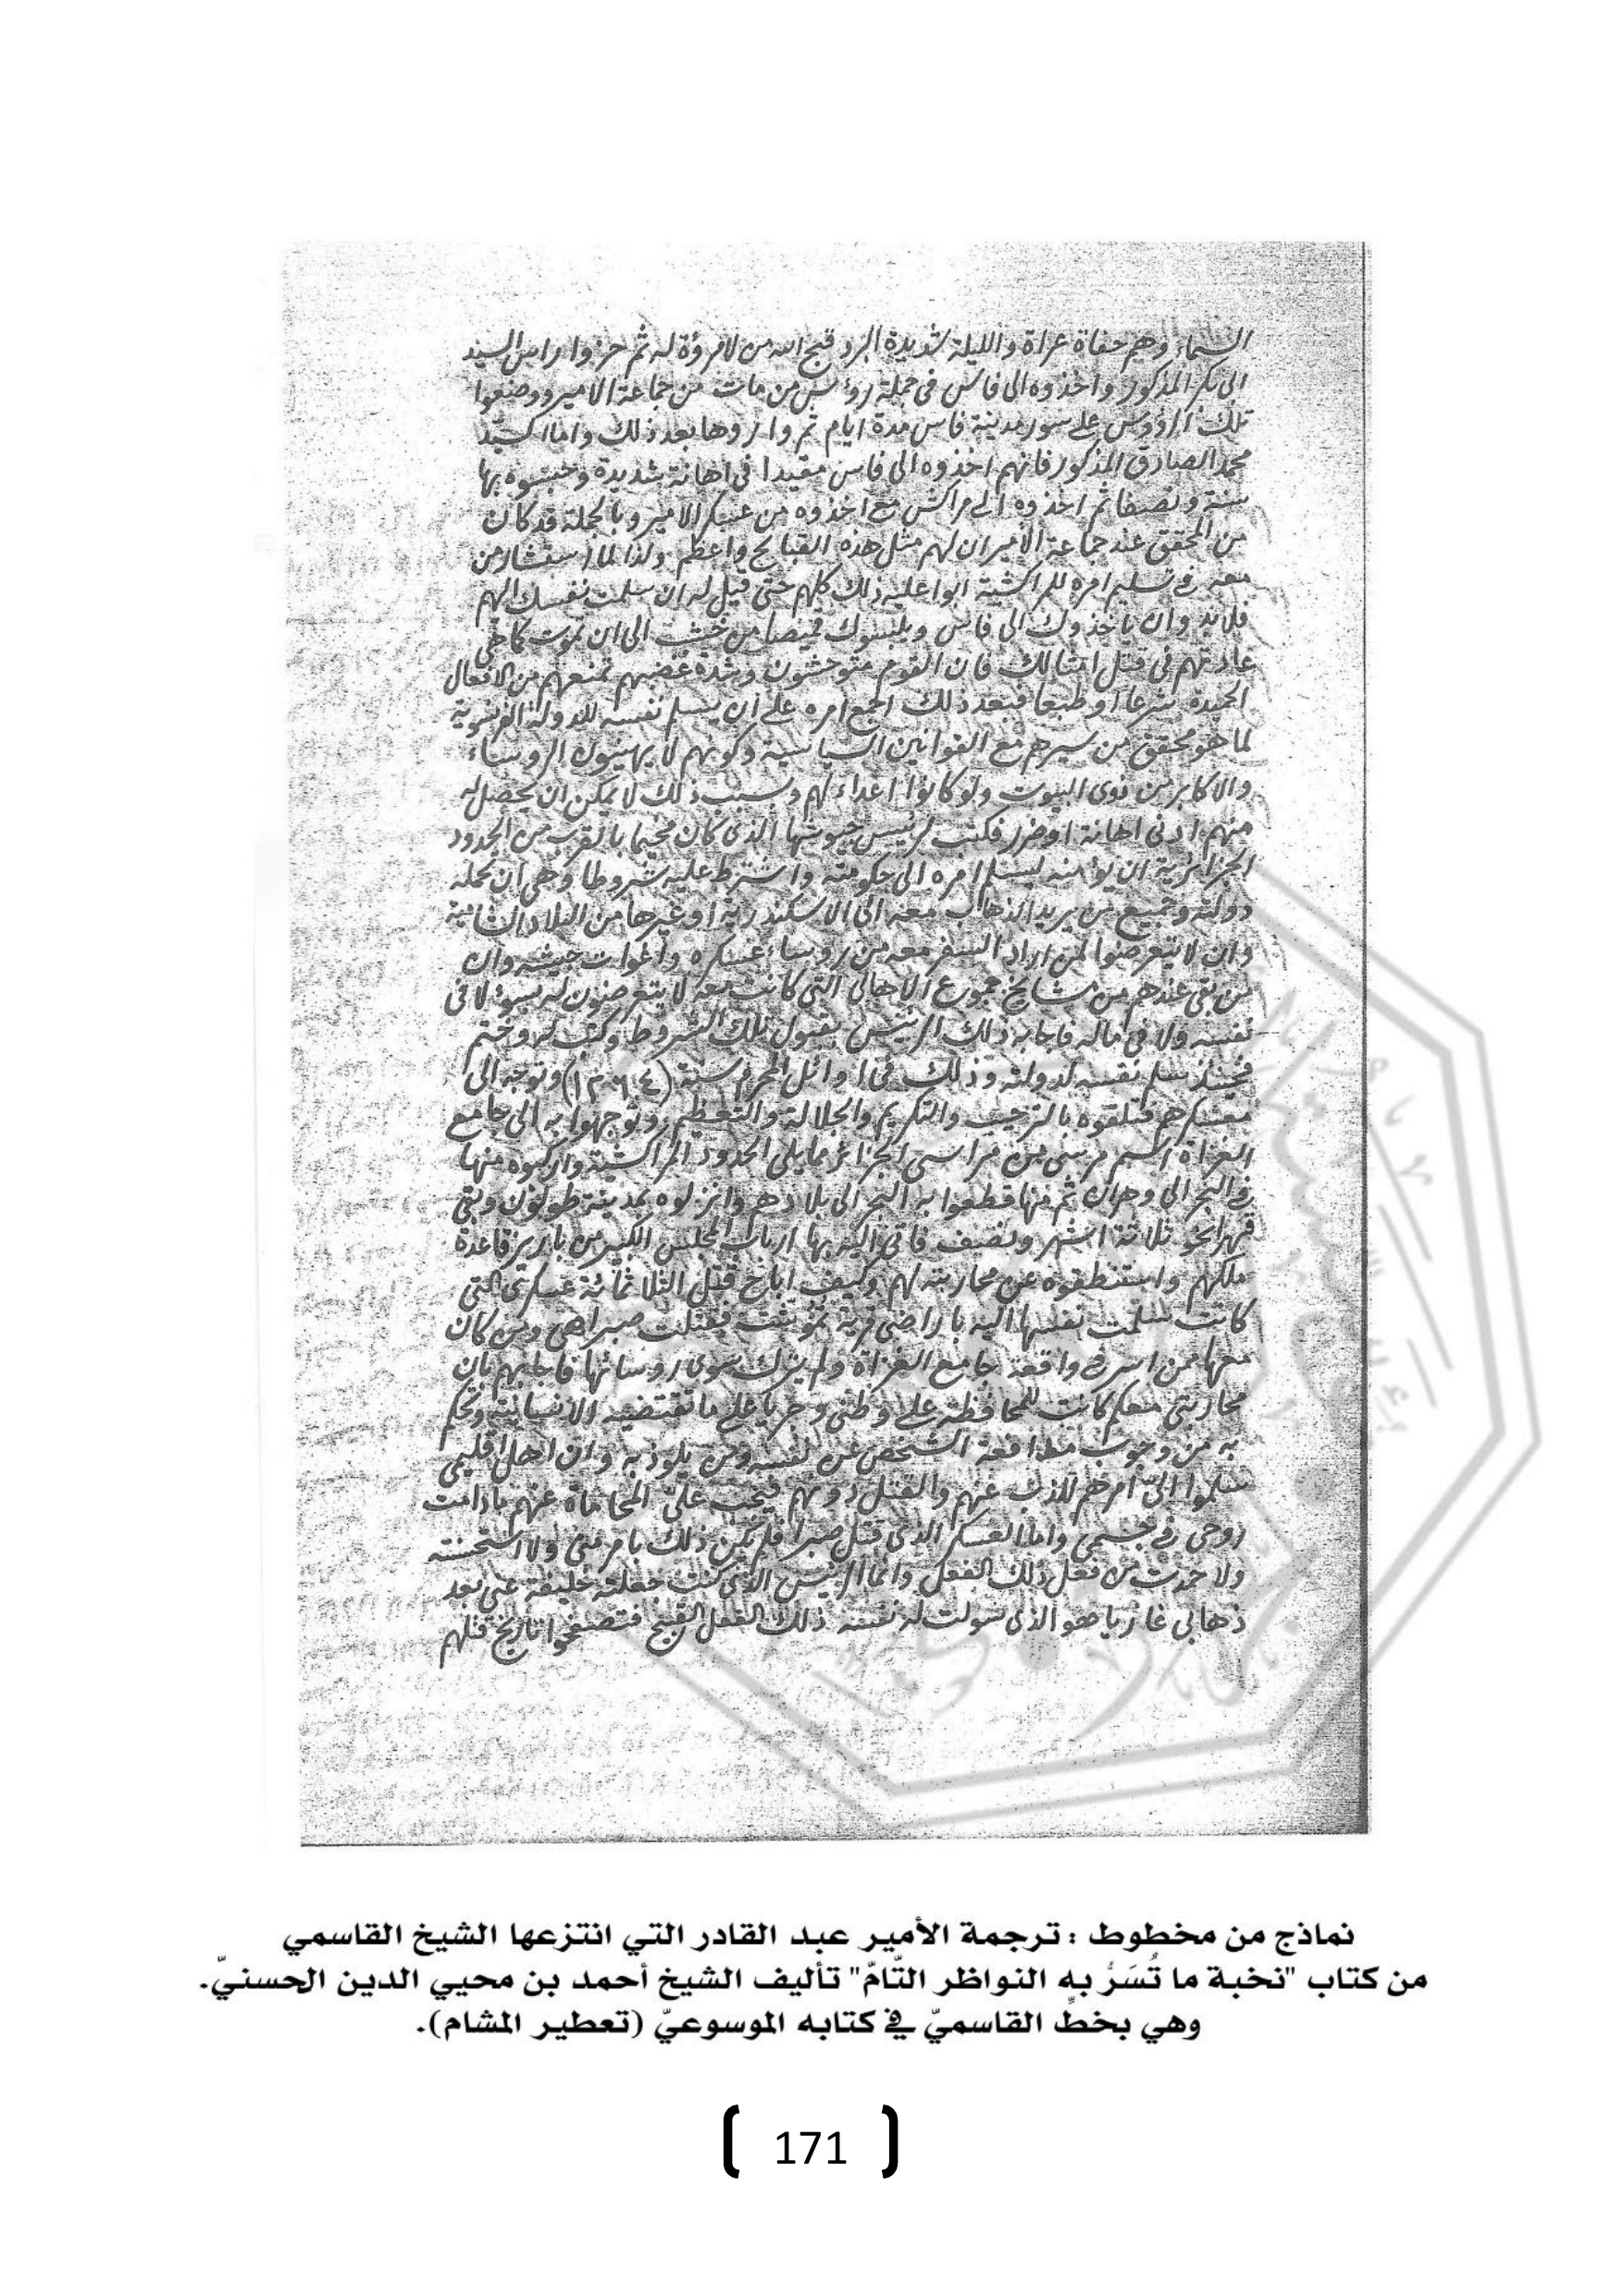 السماء وهم حفاة عراة والليلة شديدة البرد قبح الله من لا مروءة له ثم حزوا راس السيد
ابى بكر المذكور واخذوه الى فاس فى جملة رؤس من مات من جماعة الامير ووضعوا
تلك الرؤوس على سور مدينة فاس مدة ايام ثم واروها بعد ذلك واما السيد
محمد الصادق المذكور فانهم اخذوه الى فاس مقيدا فى اهانة شديدة وحبسوه بها
سنة ونصفا ثم اخذوه الى مراكش مع اخذوه من عسكر الامير وبالجملة قد كان
من المحقق عند جماعة الامير ان لهم مثل هذه القبايح واعظم ولذا لما استشار من
معه فى تسليم امره للمراكشية ابوا عليه ذلك كلهم حتى قيل له ان سلمت نفسك اليهم
فلابد وان ياخذوك الى فاس ويلبسوك قميصا من خشب الى ان تموت كما هى
عادتهم فى قتل امثالك فان القوم متوحشون وشدة غضبهم تمنعهم من الافعال
الحميدة شرعا او طبعا فبعد ذلك اجمع امره على ان يسلم نفسه للدولة الفرنسوية
لما هو محقق من سيرهم مع القوانين السياسية وكونهم لا يهينون الروساء
والاكابر من ذوى البيوت ولو كانوا اعداء لهم وبسبب ذلك لا يمكن ان يحصل له
منهم ادنى اهانة او ضرر فكتب لرئيس جيوشها الذى كان مخيما بالقرب من الحدود
الجزائرية ان يؤمنه ليسلم امره الى حكومته واشترط عليه شروطا وهى ان تحمله
دولته وجميع من يريد الذهاب معه الى الاسكندرية او غيرها من البلاد الشامية
وان لا يتعرضوا لمن اراد السفر معه من روساء عسكره واغوات جيشه وان
من بقى عندهم من مشايخ جموع الاهالى التى كانت معه لا يتعرضون له بسوء لا فى
نفسه ولا فى ماله فاجابه ذلك الرئيس بقبول تلك الشروط وكتب له وختم
فحينئذ سلم نفسه لدولته وذلك فى اوائل المحرم سنة (١٢٦٤) وتوجه الى
معسكرهم فتلقوه بالترحيب والتكريم والجلالة والتعظيم وتوجهوا به الى جامع
الغزاة اسم مرسى من مراسى الجزائر مما يلى الحدود المراكشية واركبوه منها
فى البحر الى وهران ثم منها قطعوا به البحر الى بلادهم وانزلوه بمدينة طولون وبقى
فيها نحو ثلاثة اشهر ونصف فاتى اليه بها ارباب المجلس الكبير من باريز قاعدة
ملكهم واستنطقوه عن محاربته لهم وكيف اباح قتل الثلاثمائة عسكرى التى
كانت سلمت نفسها اليه باراضى قرية تموشنت فقتلت صبرا هى ومن كان
معها ممن اسر فى واقعة جامع الغزاة ولم يترك سوى روسائها فاجابهم بان
محاربتى معكم كانت للمحافظة على وطنى وجريا على ما تقتضيه الانسانية وتحكم
به من وجوب مدافعة الشخص عن نفسه ومن يلوذ به وان اهل اقليمى
سلموا الىّ امرهم للذب عنهم والقتل دونهم فيجب علىّ المحاماة عنهم مادامت
روحى فى جسمى واما العسكر الذى قتل صبرا فلم يكن ذلك بامر منى ولا استحسنته
ولا حمدت من فعل ذلك الفعل وانما الرئيس الذى كنت جعلته خليفة عنى بعد
ذهابى غازيا هو الذى سولت له نفسه ذلك الفعل القبيح فتصفحوا تاريخ قتلهم
نماذج من مخطوط : ترجمة الأمير عبد القادر التي انتزعها الشيخ القاسمي
من كتاب "نخبة ما تُسَرُّ به النواظر التّامّ" تأليف الشيخ أحمد بن محيي الدين الحسنيّ.
وهي بخطِّ القاسميّ في كتابه الموسوعيّ (تعطير المشام).
171